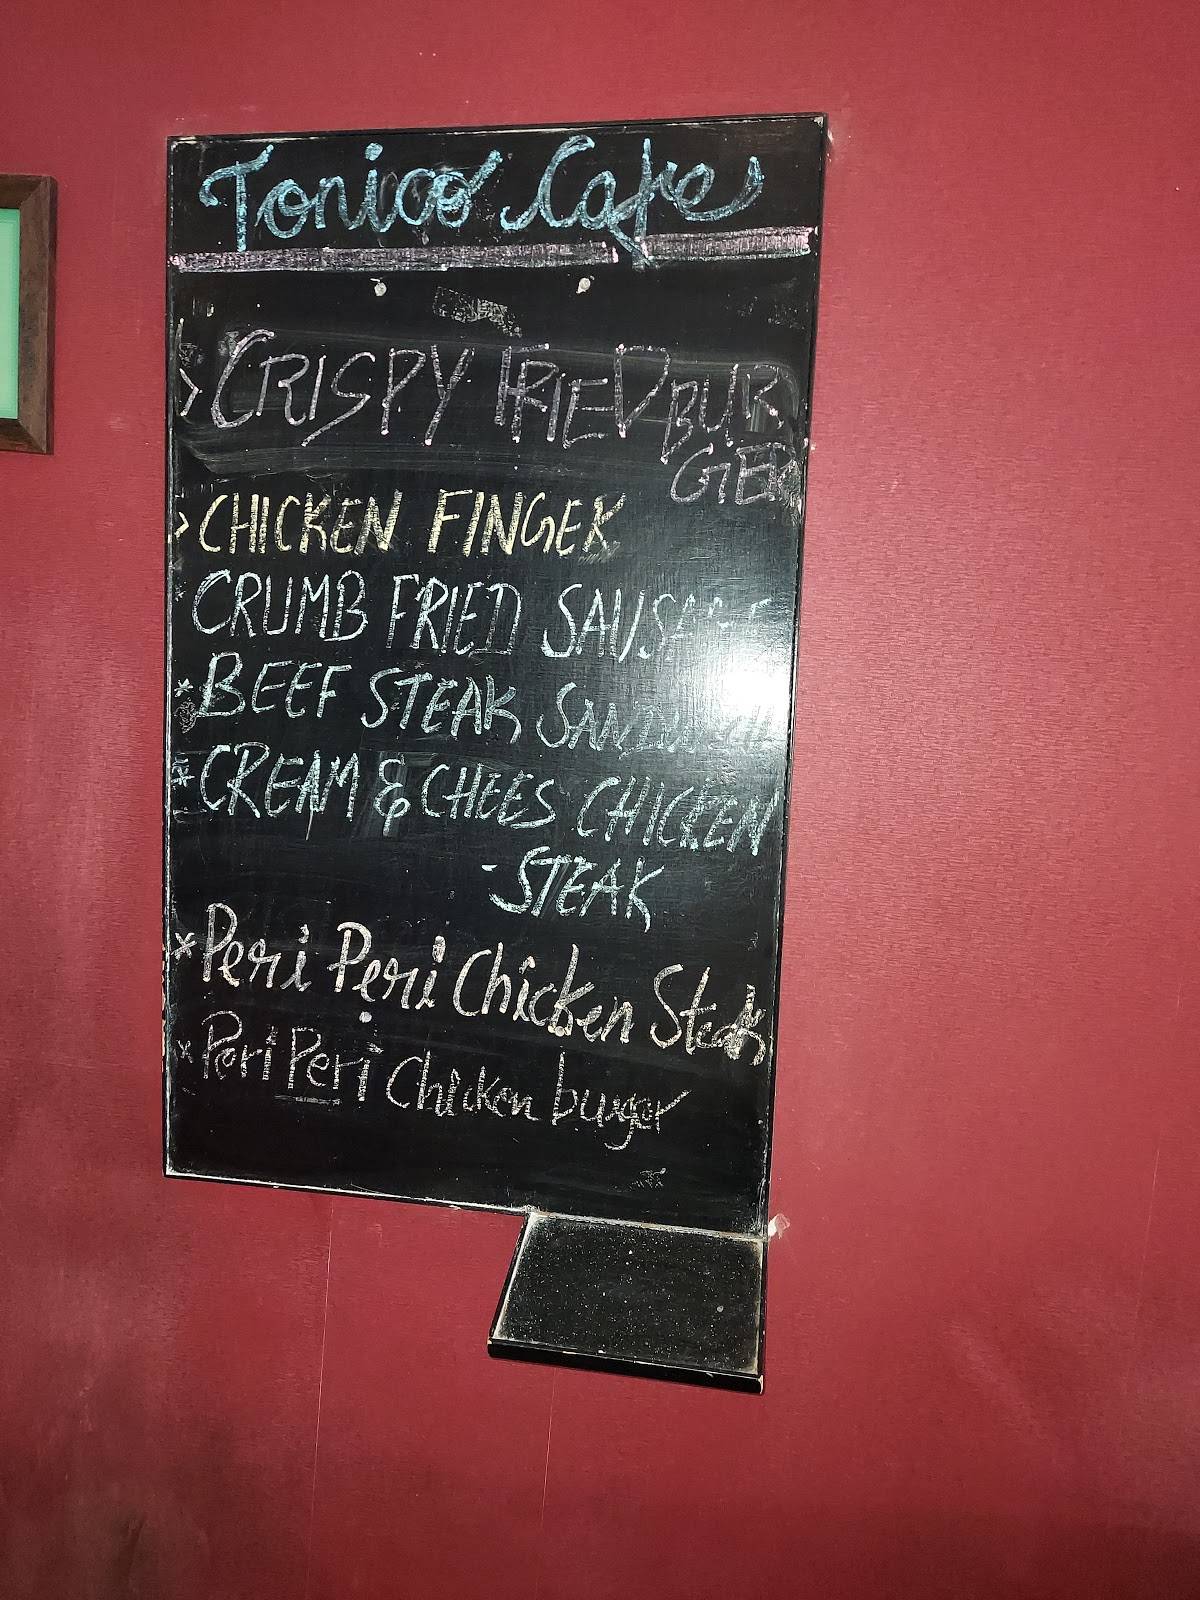 Tonico Cafe
> CRISPY FRIED BUR
GER
> CHICKEN FINGER
CRUMB FRIED SAUSAGE
* BEEF STEAK SANDWICH
* CREAM & CHEES CHICKEN
- STEAK
* Peri Peri Chicken Steak
* Peri Peri Chicken burger